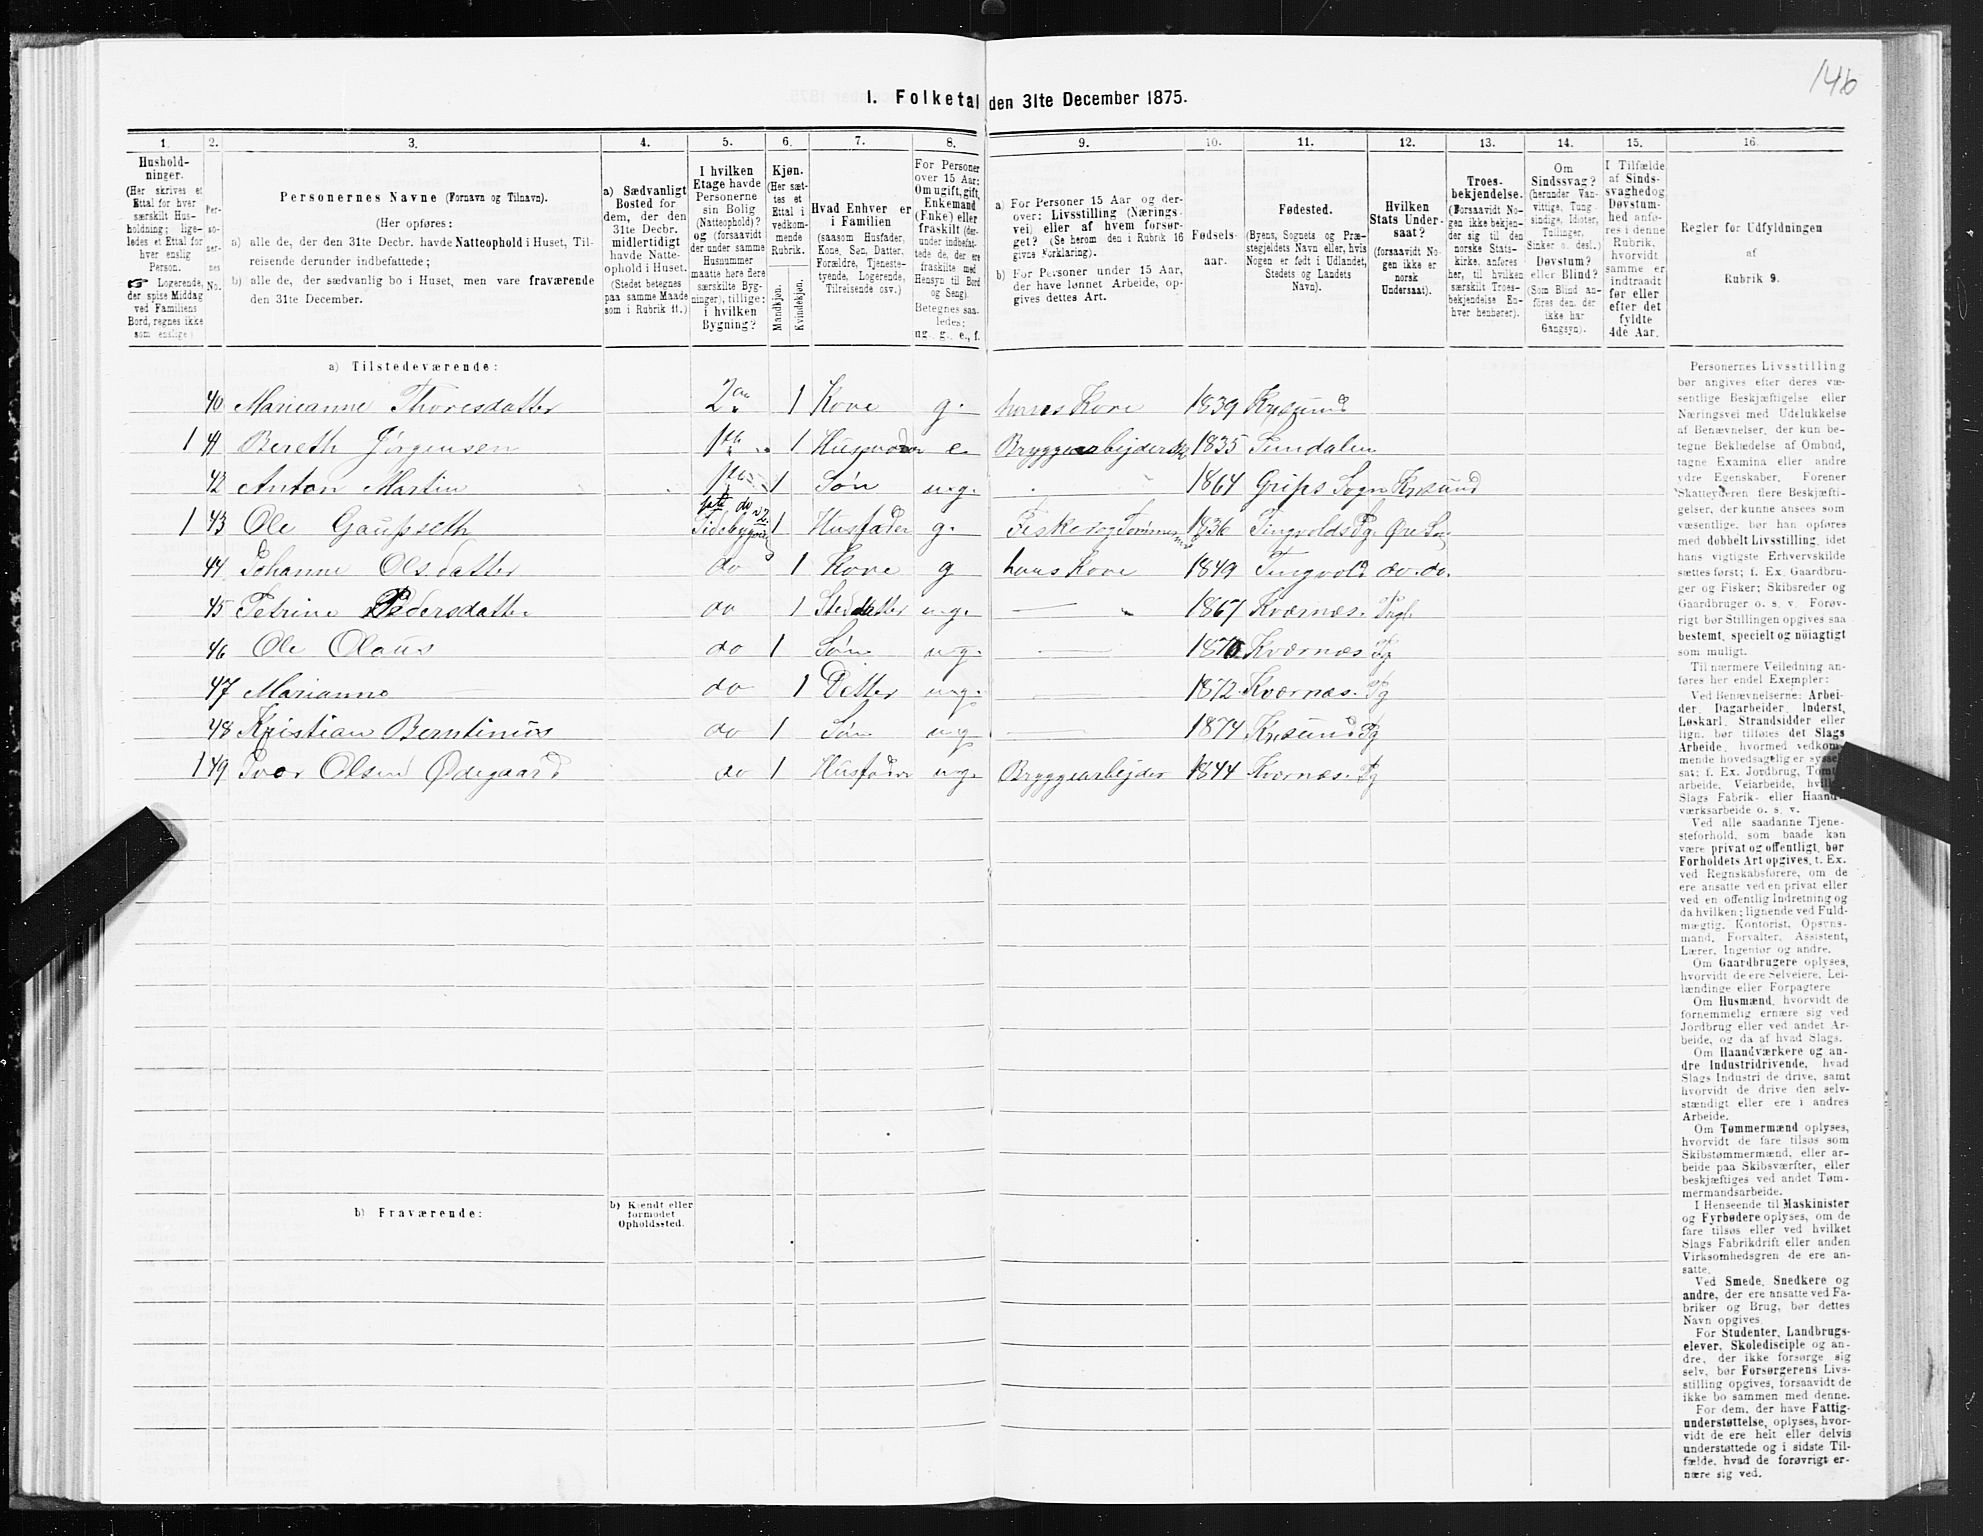 146
I. Folketal den 31te December 1875.
1. 2. 3. 4. 5. 6. 7. 8. 9. 10. 11. 12. 13. 14. 15. 16.
Hushold-
ninger.
(Her skrives et
Ettal for hver
særskilt Hus-
holdning; lige-
ledes et Ettal for
hver enslig
Person.
☞ Logerende,
der spise Middag
ved Familiens
Bord, regnes ikke
som enslige).
Per-
so-
ner-
nes
No.
Personernes Navne (Fornavn og Tilnavn).
(Her opføres:
a) alle de, der den 31te Decbr. havde Natteophold i Huset, Til-
reisende derunder indbefattede;
b) alle de, der sædvanlig bo i Huset, men vare fraværende
den 31te December.
a) Sædvanligt
Bosted for
dem, der den
31te Decbr.
midlertidigt
havde Natte-
ophold i Huset.
(Stedet betegnes
paa samme Maade
som i Rubrik 11.)
I hvilken
Etage havde
Personerne
sin Bolig
(Natteophold)?
og (forsaavidt
der under samme
Husnummer
maatte høre flere
særskilte Byg-
ninger), tillige:
i hvilken
Bygning?
Kjøn.
(Her sæt-
tes et
Ettal i
vedkom-
mende
Rubrik.
Mandkjøn.
Kvindekjøn.
Hvad Enhver er
i Familien
(saasom Husfader,
Kone, Søn, Datter,
Forældre, Tjeneste-
tyende, Logerende,
Tilreisende osv.)
For Personer
over 15 Aar:
Om ugift, gift,
Enkemand
(Enke) eller
fraskilt (der-
under indbefat-
tede de, der ere
fraskilte med
Hensyn til Bord
og Seng).
Betegnes saa-
ledes:
ug., g., e., f.
a) For Personer 15 Aar og der-
over: Livsstilling (Nærings-
vei) eller af hvem forsør-
get? (Se herom den i Rubrik 16
givne Forklaring).
b) For Personer under 15 Aar,
der have lønnet Arbeide, op-
gives dettes Art.
Fødsels-
aar.
Fødested.
(Byens, Sognets og Præ-
stegjeldets Navn eller, hvis
Nogen er født i Udlandet,
Stedets og Landets
Navn).
Hvilken
Stats Under-
saat?
(forsaavidt No-
gen ikke er
norsk
Undersaat).
Troes-
bekjendelse.
(Forsaavidt No-
gen ikke bekjen-
der sig til den
norske Stats-
kirke, anføres
her, til hvilken
særskilt Troes-
bekjendelse En-
hver henhører).
Om
Sindssvag?
(herunder Van-
vittige, Tung-
sindige, Idioter,
Tullinger,
Sinker o. desl.)
Døvstum?
eller Blind?
(Som Blind an-
føres den, der
ikke har
Gangsyn).
I Tilfælde
af Sinds-
svaghed og
Døvstum-
hed anfø-
res i denne
Rubrik,
hvorvidt
samme er
indtraadt
før eller
efter det
fyldte
4de Aar.
Regler for Udfyldningen
af
Rubrik 9.
a) Tilstedeværende:
40 Marianne Thoresdatter 1 Kone g. hans Kone 1839 Krsund
1 41 Bereth Jørgensen 1 Husmoder e. 1835 Sundalen
42 Anton Martin 1 Søn ug. 1864 Grips Sogn Krsund
1 43 Ole Gaupseth 1 Husfader g. 1836
44 Johanne Olsdatter do 1 Kone g hans Kone 1849 Tingvold do. do.
45 Petrine Pedersdatter do 1 Steddatter ug. — 1867 Kværnæs
46 Ole Olaus do 1 Søn ug. — 1870 Kværnæs Pg
47 Marianne do 1 Datter ug. — 1872 Kværnæs. Pg
48 Kristian Berntinus do 1 Søn ug — 1874 Krsund Pg
1 49 Iver Olsen Ødegaard do 1 Husfader ug. Bryggearbejder 1844 Kværnæs. Pg
b) Fraværende:
b) Kjendt eller
formodet
Opholdssted.
Personernes Livsstilling
bør angives efter deres væ-
sentlige Beskjæftigelse eller
Næringsvei med Udelukkelse
af Benævnelser, der kun be-
tegne Beklædelse af Ombud,
tagne Examina eller andre
ydre Egenskaber. Forener
Skatteyderen flere Beskjæfti-
gelser, der kunne ansees som
væsentlige, bør han opføres
med dobbelt Livsstilling, idet
hans vigtigste Erhvervskilde
sættes først; f. Ex. Gaardbru-
ger og Fisker; Skibsreder og
Gaardbruger o. s. v. Forøv-
rigt bør Stillingen opgives saa
bestemt, specielt og nøiagtigt
som muligt.
Til nærmere Veiledning an-
føres her endel Exempler:
Ved Benævnelserne: Arbei-
der, Dagarbeider, Inderst,
Løskarl, Strandsidder eller
lign. bør tilføies det Slags
Arbeide, hvormed vedkom-
mende hovedsagelig er syssel-
sat; f. Ex. Jordbrug, Tomte-
arbeide, Veiarbeide, hvilket
Slags Fabrik- eller Haand-
værksarbeide o. s. v.
Ved alle saadanne Tjene-
steforhold, som baade kan
være privat og offentligt, bør
Forholdets Art opgives, t. Ex.
ved Regnskabsførere, om de
ere ansatte ved en privat eller
ved en offentlig Indretning og
da hvilken; lignende ved Fuld-
mægtig, Kontorist, Opsyns-
mand, Forvalter, Assistent,
Lærer, Ingeniør og andre.
Om Gaardbrugere oplyses,
hvorvidt de ere Selveiere, Lei-
lændinge eller Forpagtere
Om Husmænd, hvorvidt de
fornemmelig ernære sig ved
Jordbrug eller ved andet Ar-
beide, og da af hvad Slags.
Om Haandværkere og an-
dre Industridrivende, hvad
Slags Industri de drive, samt
hvorvidt de drive den selv-
stændigt eller ere i andres
Arbeide.
Om Tømmermænd oplyses,
hvorvidt de fare tilsøs som
Skibstømmermænd, eller ar-
beide paa Skibsværfter, eller
beskjæftiges ved andet Tøm-
mermandsarbeide.
I Henseende til Maskinister
og Fyrbødere oplyses, om de
fare tilsøs eller ved hvilket
Slags Fabrikdrift eller anden
Virksomhedsgren de ere an-
satte.
Ved Smede, Snedkere og
andre, der ere ansatte ved Fa-
briker og Brug, bør dettes
Navn opgives.
For Studenter, Landbrugs-
elever, Skoledisciple og an-
dre, der ikke forsørge sig
selv, bør Forsørgerens Livs-
stilling opgives, forsaavidt de
ikke bo sammen med denne.
For dem, der have Fattig-
understøttelse, oplyses, hvor-
vidt de ere helt eller delvis
understøttede og i sidste Til-
fælde, hvad de forøvrigt er-
nære sig ved.